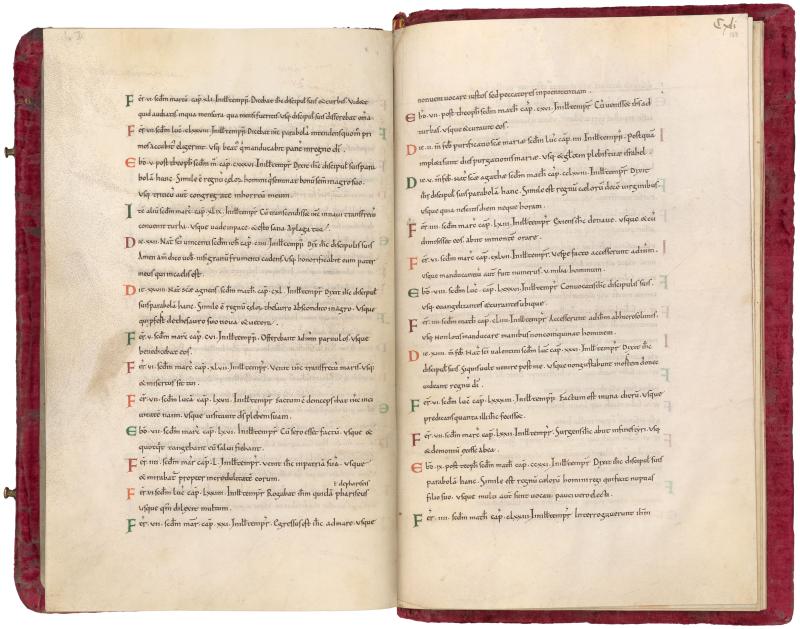 Fer. vi. scdm marcū. cap. xli. In illt tempr. Dicebat ihc discipul suis & turbis. Videte
quid audiatis. in qua mensura qua mensi fueritis. usq. discipul suis disserebat omia.
Fer. vii. scdm luc. clxxvii. In illt tempr. Dicebat ihc parabola intendens quom pri
mos accubitus eligerent. usq. beat' q manducabit pane in regno di.
Ebd. v. post theoph scdm m. cap. cxxxvi. In illt tempr. Dixit ihc discipul suis para
bola hanc. Simile e regnu celor homini q seminat bonu sem in agro suo.
usq. triticu aut congregate in horreu meum.
Ite aliu scdm marc. cap. xlix. In illt tempr. Cu transcendisset ihc in naui transfretu
conuenit turba. Usque uade in pace. & esto sana a plaga tua.
Die. xxii. Nat sci uincenti scdm ioh cap. ciiii. In illt tempr. Dix ihc discipulis suis
Amen am dico uob. nisi granu frumenti cadens. usq. honorificabit eum pater
meus qui in caelis est.
Die. xxviii. Nat scae agnetis scdm math. cap. cxl. In illt tempr. Dixit ihc discipul
suis parabola hanc. Simile e regnu celor thesauro abscondito in agro. Usque
qui pfert de thesauro suo noua & uetera.
Fer. v. scdm marc. cap. cvi. In illt tempr. Offerebant ad ihm paruulos. usque
benedicebat eos.
Fer. vi. scdm marc. cap. xlvi. In illt tempr. Venit ihc trans fretu maris. usq.
& misertus sit tui.
Fer. vii. scdm luca. cap. lxvi. In illt tempr. Factum e deinceps ibat ihc in ci
uitate naim. usque uisitauit ds plebem suam.
Ebd. vi. scdm marc. cap. lxvi. In illt tempr. Cu sero esset factu. usque &
quotqt tangebant eu salui fiebant.
Fer. iiii. scdm mar. cap. l. In illt tempr. Venit ihc in patria sua. usque
& mirabat propter incredulitate eorum.
de phariseis
Fer. vi. scdm luc. cap. lxxiiii. In illt tempr. Rogabat ihm quida phariseus
usque qm dilexit multum.
Fer. vii. scdm mar. cap. xxi. In illt tempr. Egressus est ihc ad mare. usque
Cxli
non ueni uocare iustos sed peccatores in penitentiam.
Ebd. vii. post theoph scdm math cap. cxxi. In illt tempr. Cu uenisset ihs ad
turbas. usque & curauit eos.
Die. ii. m feb purificatio scae mariae scdm luc. cap. iiii. In illt tempr. Postqua
impleti sunt dies purgationis mariae. usq. & gloriam plebis tuae israhel.
Die. v. m feb. nat scae agathae scdm math. cap. cclxviii. In illt tempr. Dixit
ihc discipul suis parabola hanc. Simile est regnu caeloru dece uirginibus.
usque quia nescitis diem neque horam.
Fer. iiii. scdm marc. cap. lxiii. In illt tempr. Exiens ihc de naue. usque & cu
dimisisset eos abiit in monte orare.
Fer. vi. scdm marc. cap. cxlvii. In illt tempr. Vespe facto accesserunt ad ihm.
usque manducantiu aut fuit numerus. v. milia hominum.
Ebd. viii. scdm luc. cap. lxxxvi. In illt tempr. Conuocatis ihc discipulis suis.
usq. euangelizantes & curantes ubique.
Fer. iiii. scdm math cap. cliiii. In illt tempr. Accesserunt ad ihm ab hierosolimis.
usq. Non lotis manducare manibus non coinquinat hominem.
Die. xiiii. m feb. Nat sci ualentini scdm luc. cap. xxxi. In illt tempr. Dixit ihc
discipul suis. Siquis uult uenire post me. usque non gustabunt morte donec
uideant regnu di.
Fer. vi. scdm luc. cap. lxxxiii. In illt tempr. Factum est in una dieru. usque
predicans quanta illi ihc fecisset.
Fer. vii. scdm marc. cap. lxxii. In illt tempr. Surgens ihc abiit in fines tyri. usq.
& demoniu exisse ab ea.
Ebd. ix. post theoph scdm math cap. ccxxi. In illt tempr. Dixit ihc discipul suis
parabola hanc. Simile est regnu caeloru homini regi qui fecit nuptias
filio suo. usque multi aut sunt uocati. pauci uero electi.
Fer. iiii. scdm math. cap. clxxiii. In illt tempr. Interrogauerunt ihm